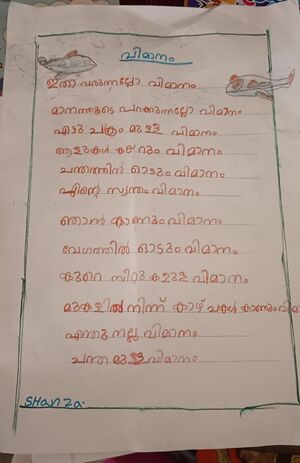 വിമാനം
ഇതാ വരുന്നല്ലോ വിമാനം
മാനത്തൂടെ പറക്കുന്നല്ലോ വിമാനം
ഏഴു ചക്രം മുള്ള വിമാനം
ആളുകൾ കയറും വിമാനം
ചന്തത്തിൽ ഓടും വിമാനം
എന്റെ സ്വന്തം വിമാനം
ഞാൻ കാണും വിമാനം
വേഗത്തിൽ ഓടും വിമാനം
കുറെ സീറ്റുകളുള്ള വിമാനം
മുകളിൽ നിന്ന് കാഴ്ചകൾ കാണും വിമാ
എന്തു നല്ല വിമാനം
ചന്തമുള്ള വിമാനം
SHanza.